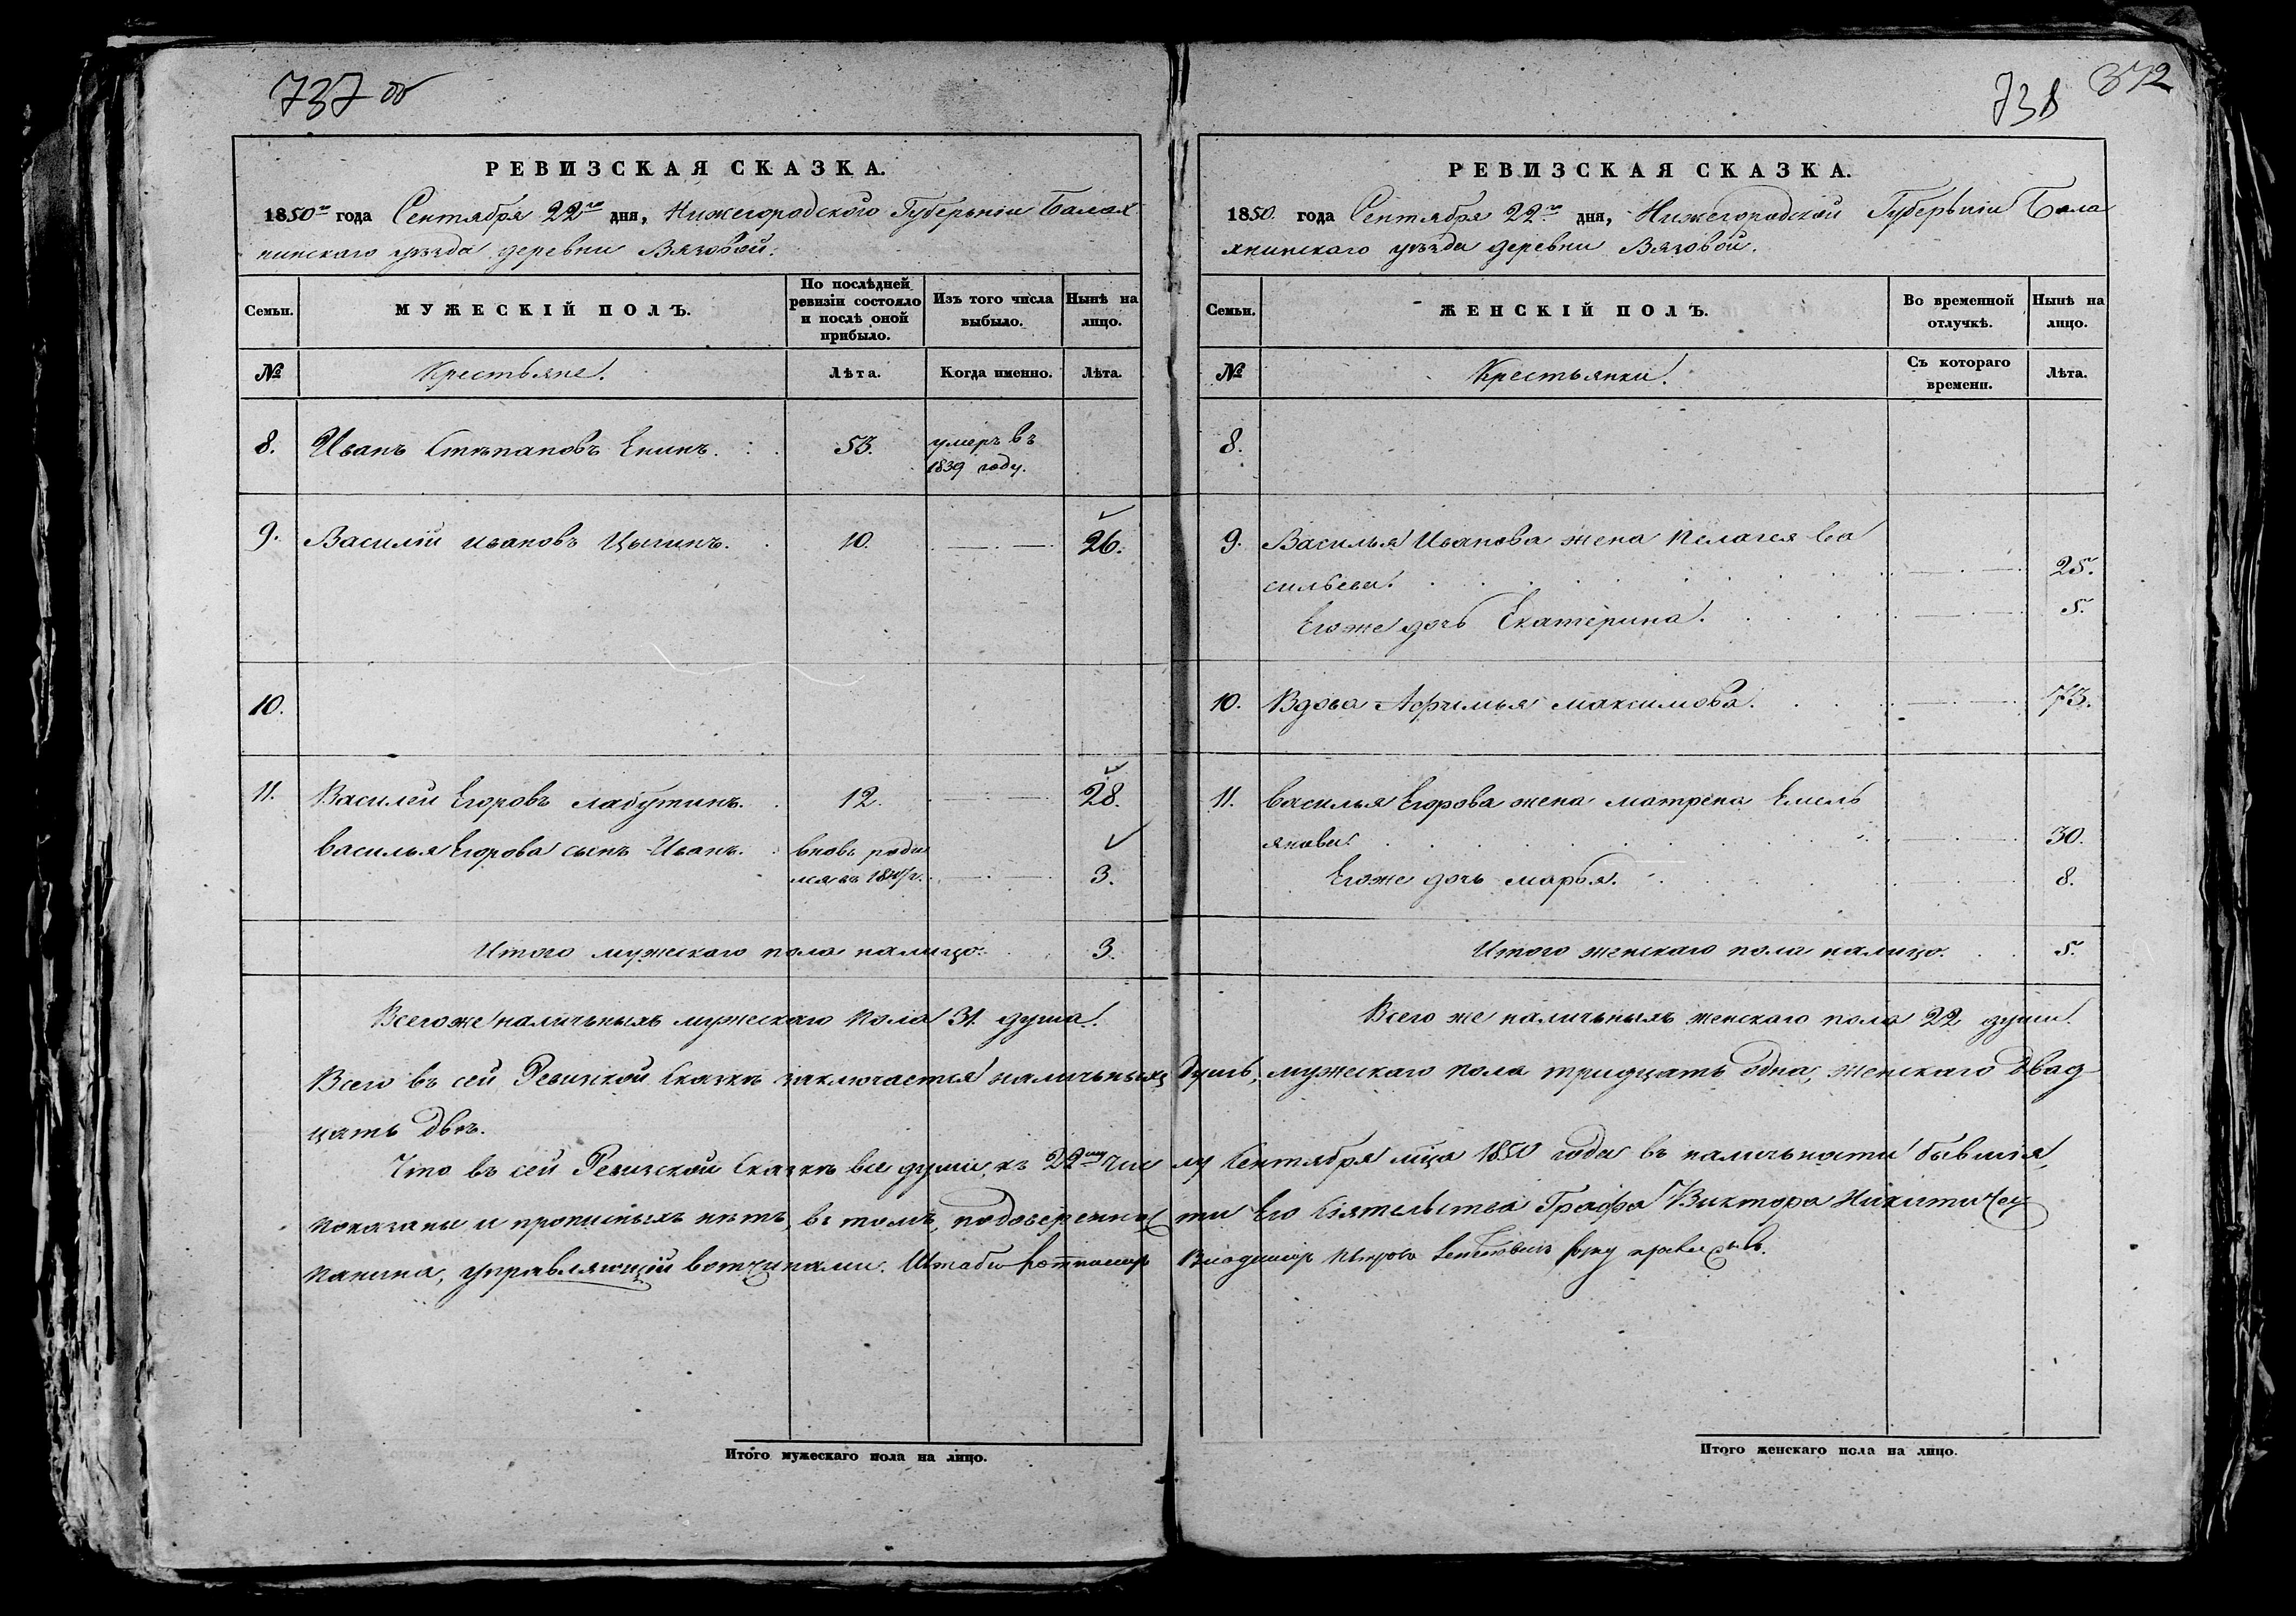 737 об
РЕВИЗСКАЯ СКАЗКА.
1850го года Сентября 22го дня, Нижегородского Губерьніи Балах
нинскаго уѣзда деревни Вязовой.
Семьи.
МУЖЕСКІЙ ПОЛЪ.
По послѣдней ревизіи состояло и послѣ оной прибыло.
Изъ того числа выбыло.
Нынѣ на лицо.
№
Крестьяне.
Лѣта.
Когда именно.
Лѣта.
8. Иванъ Степановъ Енинъ. 53. умеръ въ
1839 году.
9. Василій Ивановъ 10. 26.
10.
11. Василей Егоровъ Лабутинъ. 12. 28.
Василья Егорова сынъ Иванъ. вновь роди
лся въ 3.
Итого мужескаго пола налицо. 3.
Всего же наличьныхъ мужескаго пола 31 душа.
738 372
РЕВИЗСКАЯ СКАЗКА.
1850. года Сентября 22го дня, Нижегородской Губерьніи Бала
хнинскаго уѣзда деревни Вязовой.
Семьи.
ЖЕНСКІЙ ПОЛЪ.
Во временной отлучкѣ.
Нынѣ на лицо.
№
Крестьянки.
Съ котораго времени.
Лѣта.
8.
9. Василья Иванова жена Пелагея Ва
сильева. 25.
Его же дочь Екатерина. 5.
10. Вдова Афимья Максимова. 73.
11. Василья Егорова жена Матрена Емель
янова. 30.
Его же дочь Марья. 8.
Итого женскаго пола налицо. 5.
Всего же наличьныхъ женскаго пола 22 души.
Всего въ сей Ревизской Сказкѣ заключается наличьныхъ душъ, мужескаго пола тридцать одна, женскаго двад
цать двѣ.
Что въ сей Ревизской Сказкѣ все души, къ 22му чис лу Сентября мца 1850 года въ наличьности бывшія,
показаны и прописныхъ нѣтъ, въ томъ, подоверенно сти Его Сіятельства Графа Виктора Никитича
Панина, управляющій вотчинами. Штабс Владимир Петров сын руку приложилъ.
Итого мужескаго пола на лицо.
Итого женскаго пола на лицо.